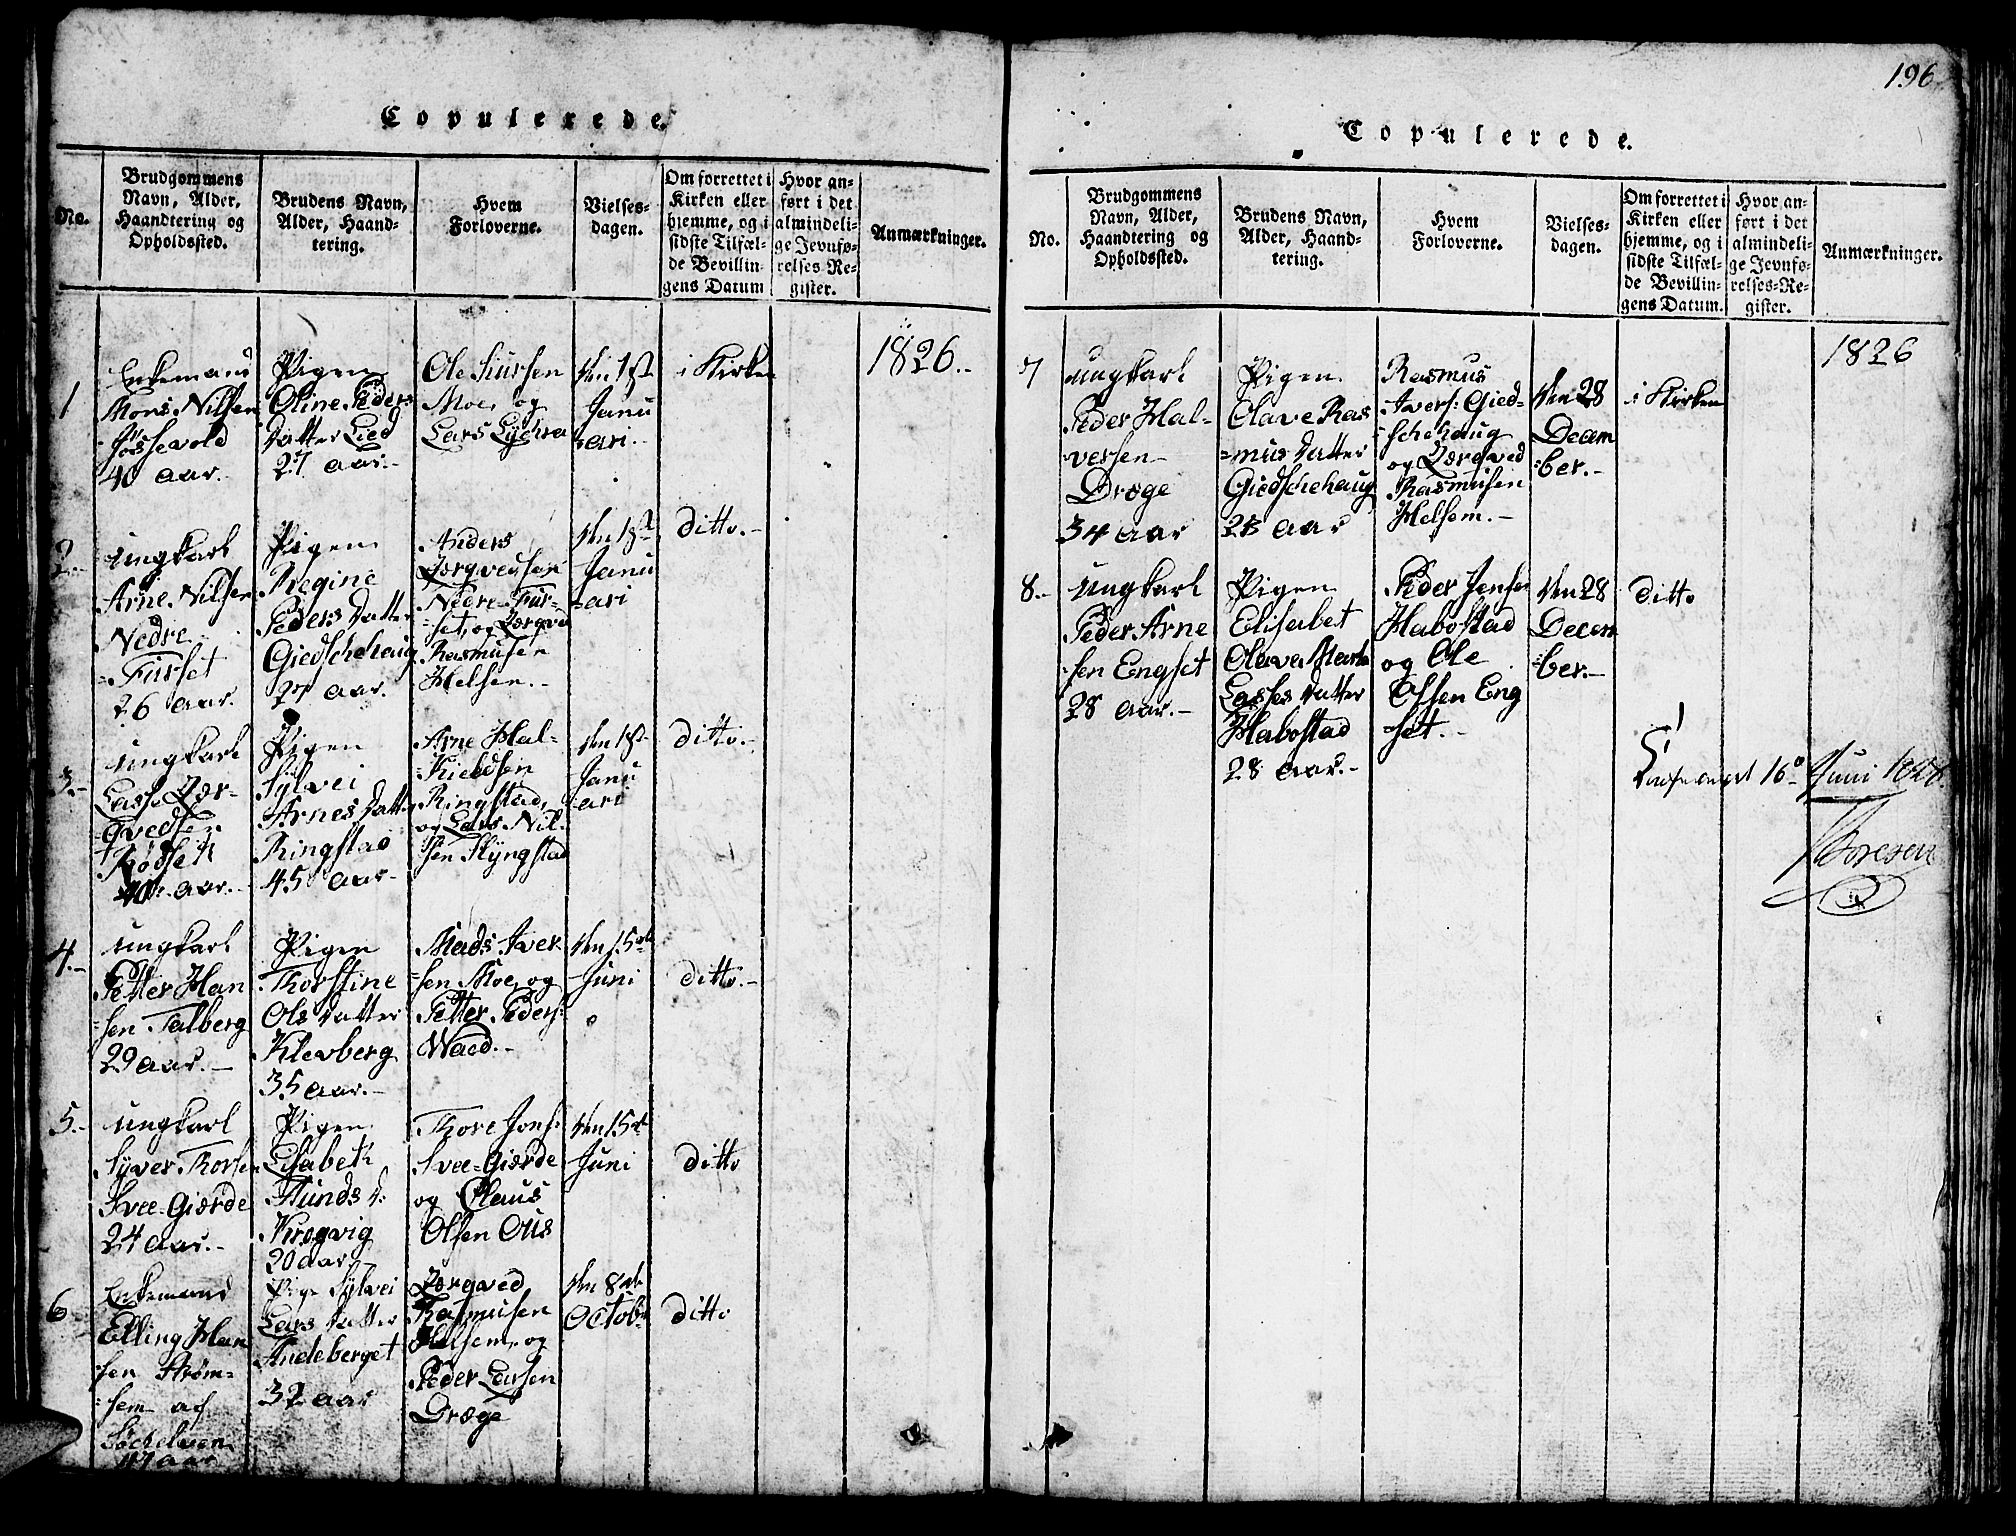 196
Copulerede.
No.
Brudgommens
Navn, Alder,
Haandtering og
Opholdssted.
Brudens Navn,
Alder, Haand-
tering.
Hvem
Forloverne.
Vielses-
dagen.
Om forrettet i
Kirken eller
hjemme, og i
sidste Tilfæl-
de Bevillin-
gens Datum
Hvor an-
ført i det
almindeli-
ge Jevnfø-
relses-Re-
gister.
Anmærkninger.
1826.-
1
Enkemand
Mons Nilsen
40 aar.-
Pigen
Oline Peders
datter Lied
27 aar.-
Ole Siursen
Moe, og
Lars Lychra
den 1ste
Janu
=ari.-
i Kirken
2.-
Ungkarl
Arne Nilsen
Nedre
=Furset
26 aar.
Pigen
Regine
Peders datter
Giedschehaug
27 aar.
Anders
Nedre Fur-
=set, og
Rasmusen
Helsem.-
den 1ste
Janu
=ari
ditto.-
3.-
Ungkarl
Lasse Qær-
=qvedsen
Rødseth
40 aar.-
Pigen
Sylvei
Arnes datter
Ringstad
45 aar.-
Arne Hal-
=kieldsen
Ringstad,
og Lars Nil-
sen Slyngstad
den 1ste
Janu
=ari
ditto.-
4.-
Ungkarl
Petter Han
=sen Talberg
29 aar.-
Pigen
Thorstine
Ols datter
Klevberg
35 aar.-
Mads Iver
=sen Moe, og
Petter Peders:
Waed.-
den 15de
Juni
ditto.-
5.-
Ungkarl
Syver Thorsen
Svee-Giærde
24 aar.-
Pigen
Elisabeth
Krogvig
20 aar.-
Thore Jons:
Svee-Giærde
og Claus
Olsen Ous
den 15de
Juni
ditto
6
Enkemand
Elling Han
=sen Strøm-
=sem af
Søchelven
47 aar
Pige Sylvei
Lars datter
Andeberget
32 aar
Qærqved
Rasmusen
Helsem, og
Peder Larsen
Dræge
den 8de
Octobr
ditto
Copulerede.
No.
Brudgommens
Navn, Alder,
Haandtering og
Opholdssted.
Brudens Navn,
Alder, Haand-
tering.
Hvem
Forloverne.
Vielses-
dagen.
Om forrettet i
Kirken eller
hjemme, og i
sidste Tilfæl-
de Bevillin-
gens Datum.
Hvor an-
ført i det
almindeli-
ge Jevnfø-
relses-Re-
gister.
Anmærkninger.
1826
7
Ungkarl
Peder Hal-
=versen
Dræge
34 aar
Pigen
Olave Ras
=mus datter
Giedschehaug
23 aar
Rasmus
Ivers: Gied-
=schehaug
og Qærqved
Rasmusen
Helsem.-
den 28
Decem
=ber.-
i Kirken
8.-
Ungkarl
Peder Arne
=sen Engset
28 aar.-
Pigen
Elisabet
Olava Marta
Lasses datter
Habostad
28 aar.-
Peder Jensen
Habostad
og Ole
Olsen Eng
=set.-
den 28
Decem
=ber.-
ditto
16de Juni
Thoresen